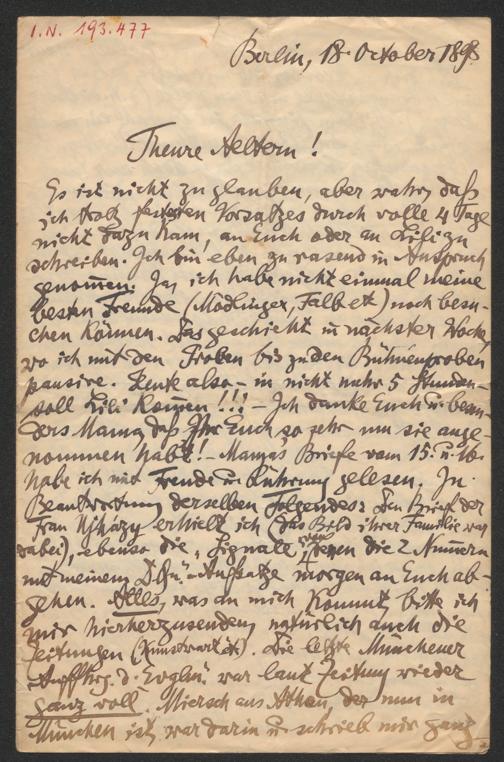 I.N. 193.477
Berlin, 18. October 1898
Theure Aeltern!
Es ist nicht zu glauben, aber wahr, daß
ich trotz festesten Vorsatzes durch volle 4 Tage
nicht dazu kam, an Euch oder an Lili zu
schreiben. Ich bin eben zu rasend in Anspruch
genom̅en. Ja, ich habe nicht einmal meine
besten Freunde (Mödlinger, Falb etc) noch besu-
chen können. Das geschieht in nächster Woche,
wo ich mit den Proben bis zu den Bühnenproben
pausire. Heute also – in nicht mehr 5 Stunden –
soll Lili kom̅en!!! – Ich danke Euch u. beson-
ders Mama, daß Ihr Euch so sehr um sie ange-
nommen habt! – Mama's Briefe vom 15. u. 16.
habe ich mit Freude u. Rührung gelesen. In
Beantwortung derselben Folgendes: Den Brief der
Frau erhielt ich (das Bild ihrer Familie war
dabei), ebenso die „Signale", von denen die 2 Nummern
mit meinem Aufsatze morgen an Euch ab-
gehen. Alles, was an mich kommt, bitte ich
mir hierherzusenden, natürlich auch die
Zeitungen (Kunstwart etc). Die letzte Münchener
Aufführg. d. Evglm. war laut Zeitung wieder
ganz voll. Miersch aus Athen, der nun in
München ist, war darin u. schrieb mir ganz